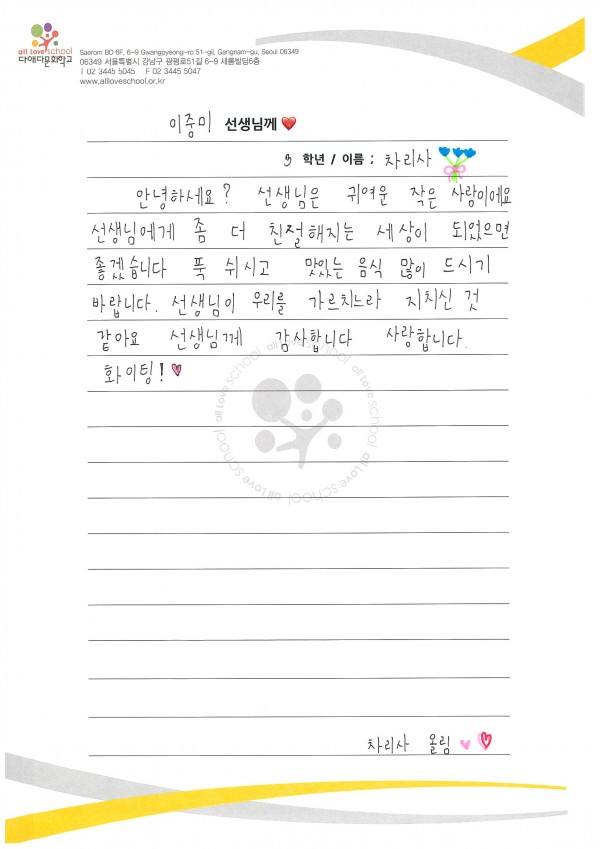 all Love school
다애다문화학교
Saerom BD 6F, 6-9 Gwangpyeong-ro 51-gil, Gangnam-gu, Seoul 06349
06349 서울특별시 강남구 광평로51길 6-9 새롬빌딩6층
T 02 3445 5045 F 02 3445 5047
www.allloveschool.or.kr
이중미 선생님께
3 학년 / 이름 : 차리사
안녕하세요? 선생님은 귀여운 작은 사람이에요
선생님에게 좀 더 친절해지는 세상이 되었으면
좋겠습니다 푹 쉬시고 맛있는 음식 많이 드시기
바랍니다. 선생님이 우리를 가르치느라 지치신 것
같아요 선생님께 감사합니다 사랑합니다.
화이팅!
all Love school all Love school all Love school all Love school
차리사 올림